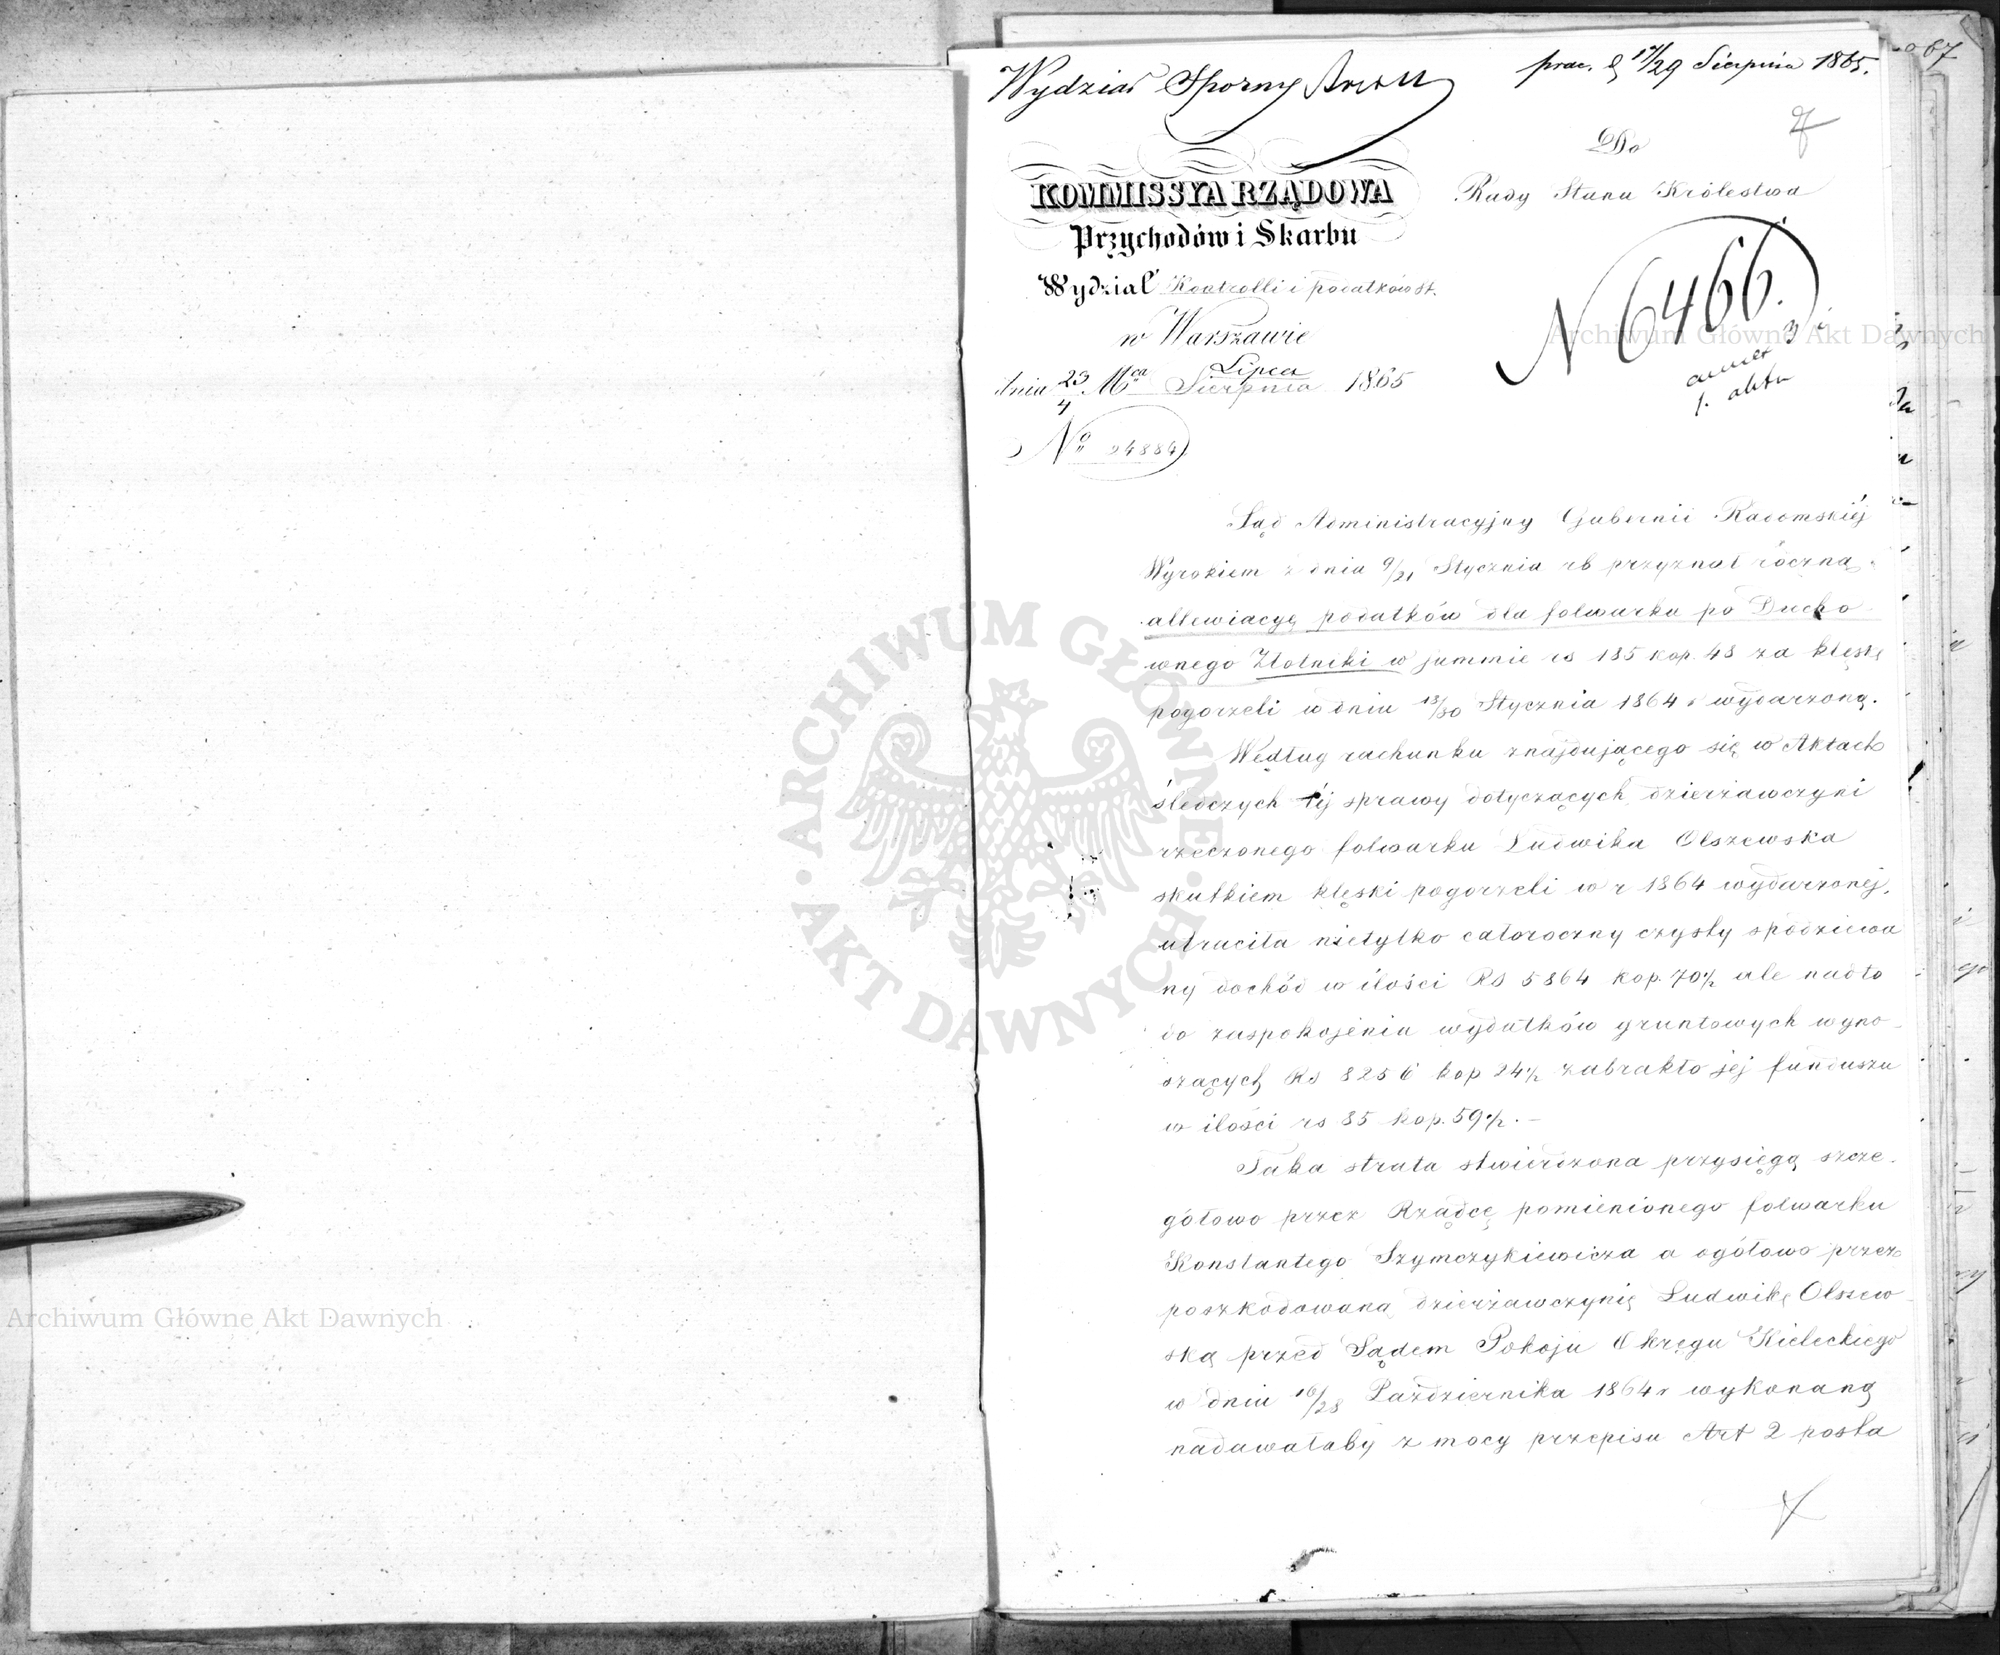 67
Wydział Sporny
17/29 Sierpnia 1865.
Do
Rady Stanu Królestwa
KOMMISSYA RZĄDOWA
Przychodów i Skarbu
Wydział Kontrolli i podatków st.
w Warszawie
dnia 23/4 Mca Lipca/Sierpnia 1865
N 6466.
No 24884
1. aktu
Sąd Administracyjny Gubernii Radomskiéj
Wyrokiem z dnia 9/21 Stycznia rb przyznał roczną
allewiacyę podatków dla folwarku po Ducho
wnego Złotniki w summie rs 185 kop. 48 za klęskę
pogorzeli w dniu 18/30 Stycznia 1864 r wydarzoną.
Według rachunku znajdującego się w Aktach
śledczych téj sprawy dotyczących dzierżawczyni
rzeczonego folwarku Ludwika Olszewska
skutkiem klęski pogorzeli w r 1864 wydarzonéj,
utraciła nietylko całoroczny czysty spodziewa
ny dochód w ilości Rs 5864 kop. 70½ ale nadto
do zaspokojenia wydatków gruntowych wyno-
szących Rs 8256 kop 24½ zabrakło jej funduszu
w ilości rs 85 kop. 59½. –
Taka strata stwierdzona przysięgą szcze-
gółowo przez Rządcę pomienionego folwarku
Konstantego Szymczykiewicza a ogółowo przez
poszkodowaną dzierżawczynię Ludwikę Olszew
ską przed Sądem Pokoju Okręgu Kieleckiego
w dniu 16/28 Października 1864 r wykonaną
nadawałaby z mocy przepisu Art 2 posta
Archiwum Główne Akt Dawnych
Archiwum Główne Akt Dawnych
· ARCHIWUM GŁÓWNE · AKT DAWNYCH